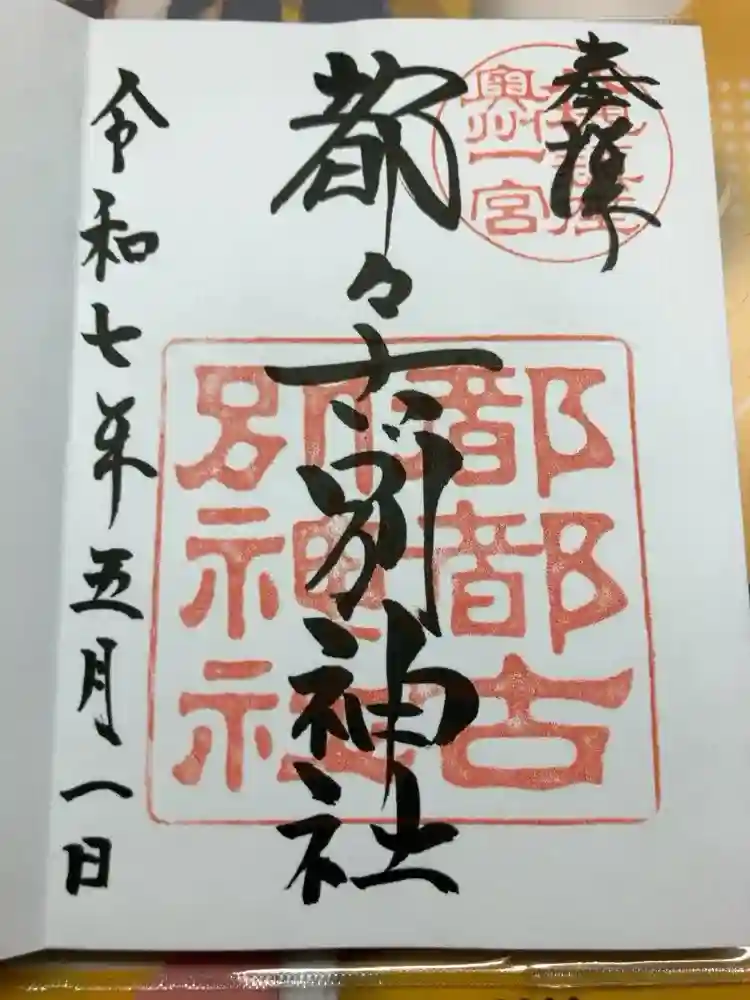 奉拝
都々古別神社
令和七年五月一日
奥州一宮
都都古
別神社